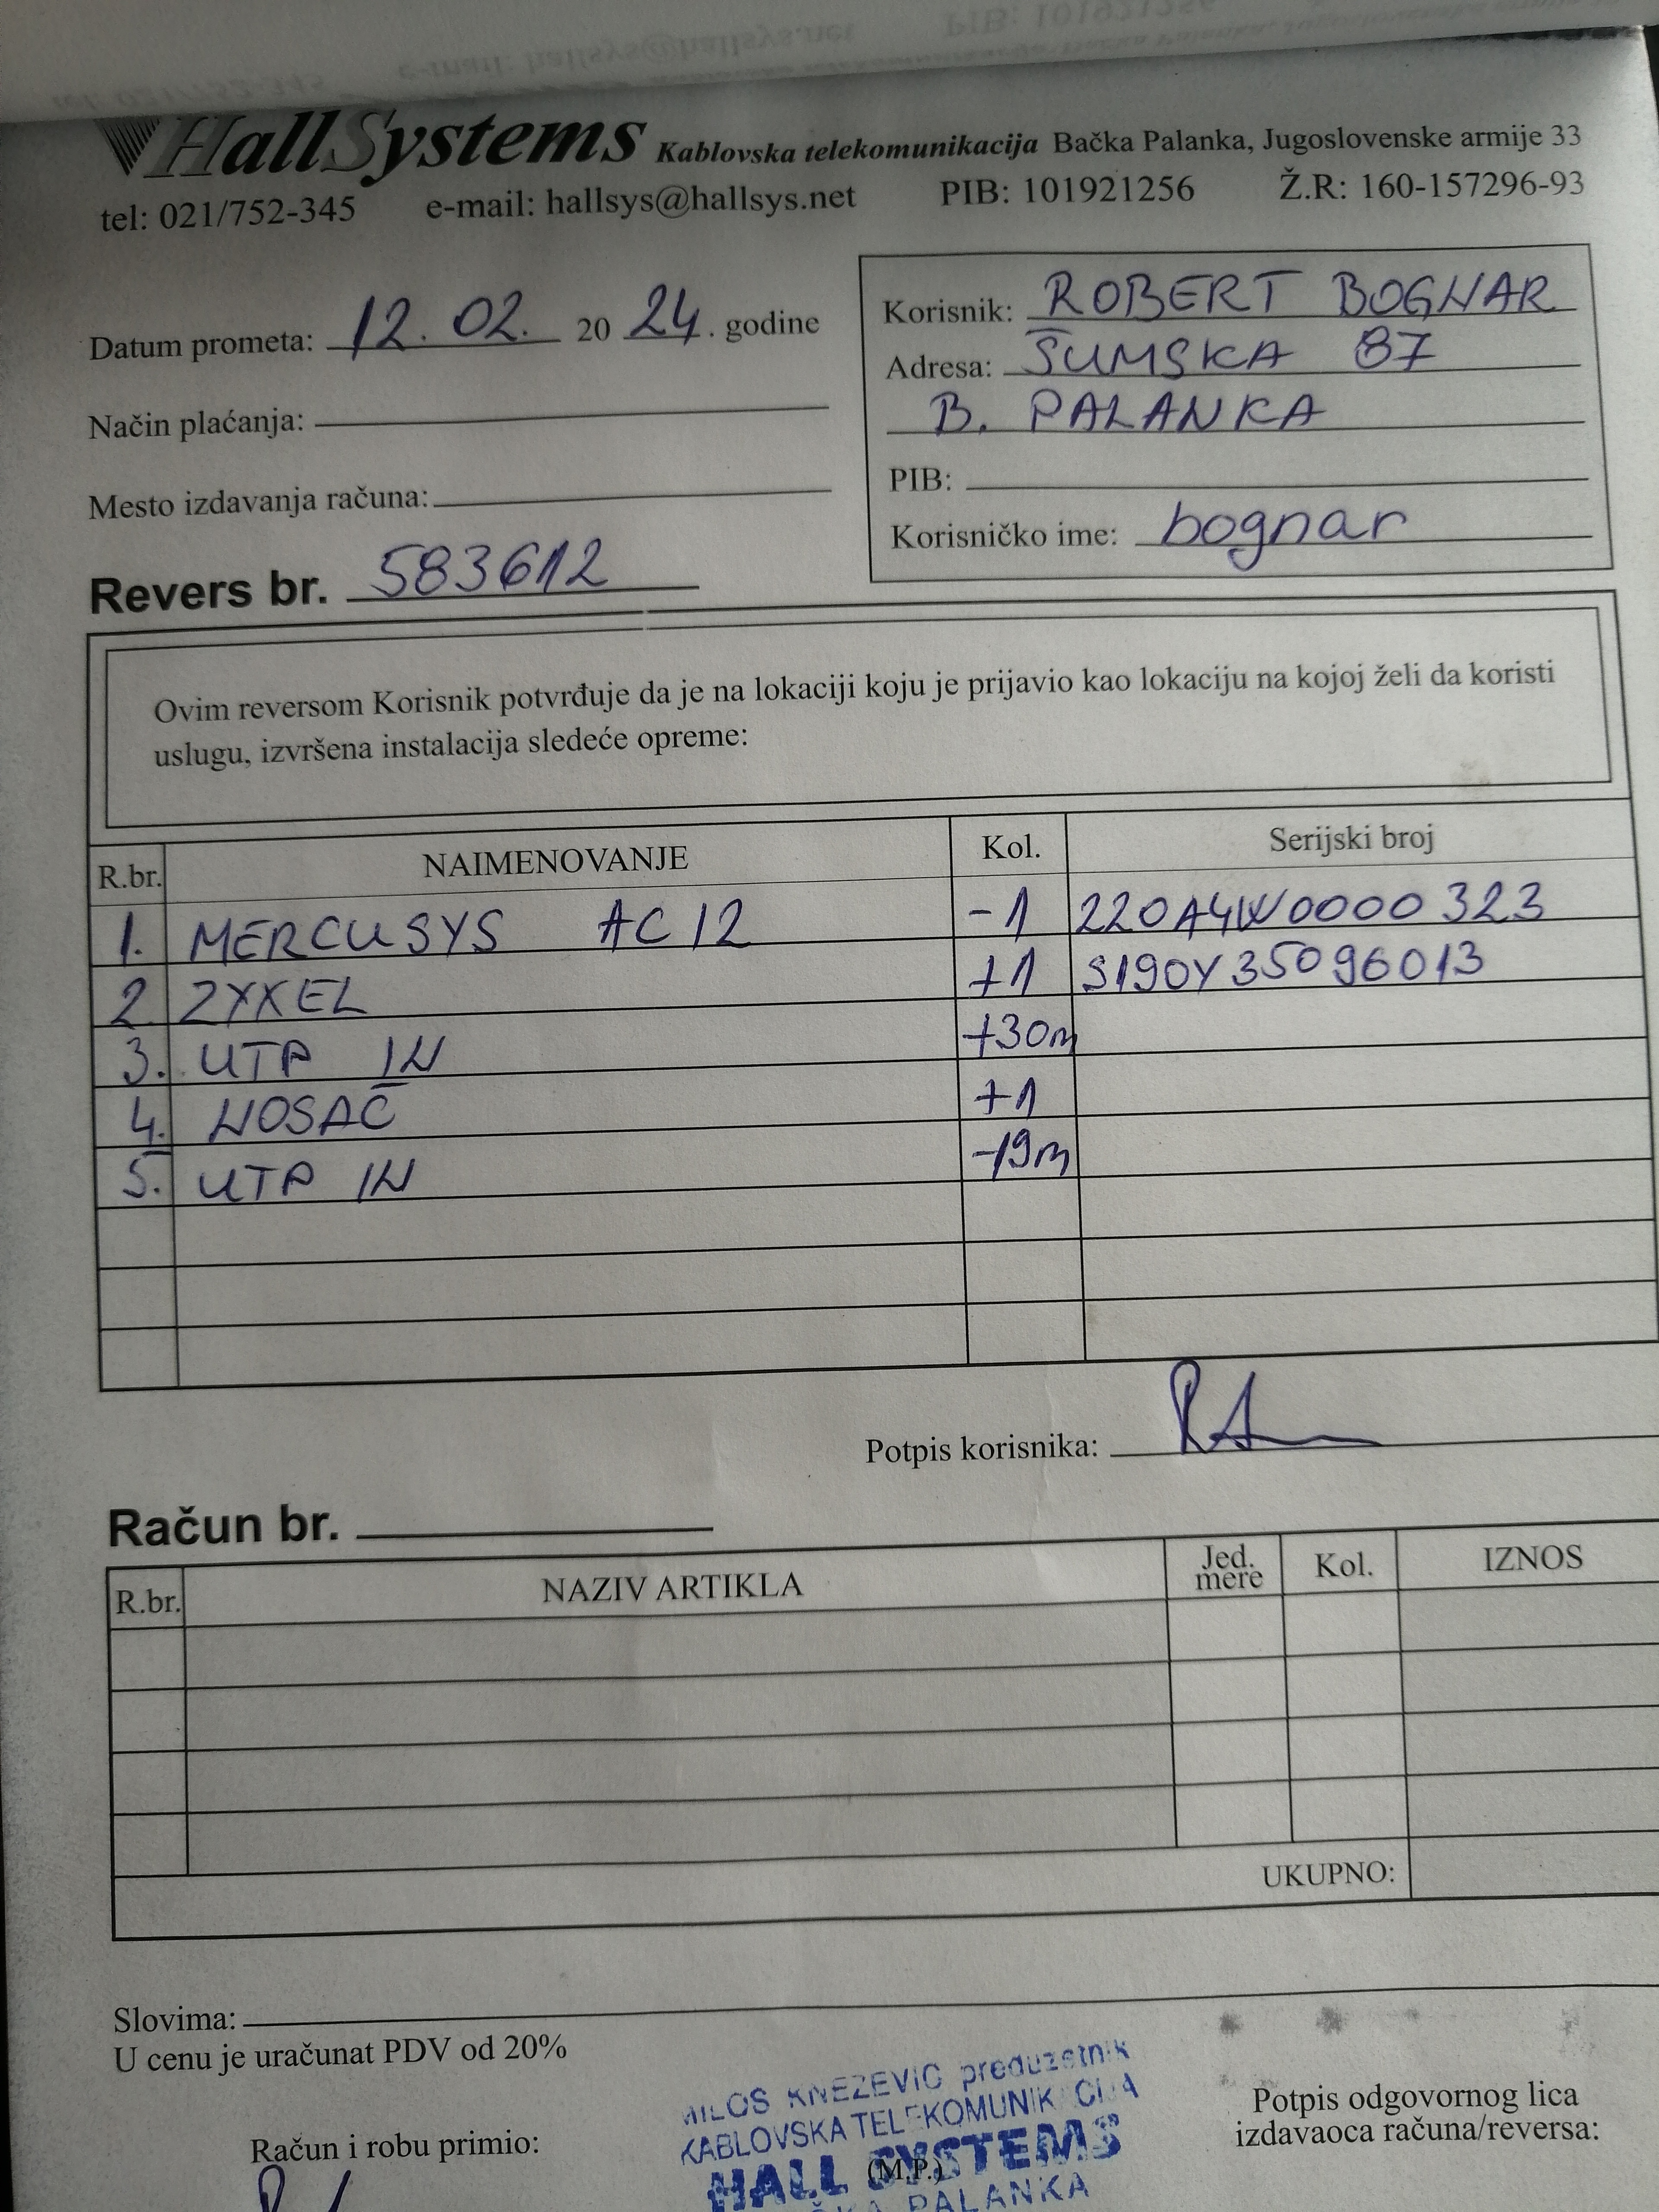 HallSystems Kablovska telekomunikacija Bačka Palanka, Jugoslovenske armije 33
tel: 021/752-345 e-mail: hallsys@hallsys.net PIB: 101921256 Ž.R: 160-157296-93
Datum prometa: 12. 02. 20 24. godine
Način plaćanja:
Mesto izdavanja računa:
Korisnik: ROBERT BOGNAR
Adresa: ŠUMSKA 87
B. PALANKA
PIB:
Korisničko ime: bognar
Revers br. 583612
Ovim reversom Korisnik potvrđuje da je na lokaciji koju je prijavio kao lokaciju na kojoj želi da koristi
uslugu, izvršena instalacija sledeće opreme:
R.br. NAIMENOVANJE Kol. Serijski broj
1. MERCUSYS AC12 -1 220A4W0000323
2. ZYXEL +1 S190Y35096013
3. UTP IN +30m
4. NOSAČ +1
5. UTP IN -19m
Potpis korisnika:
Račun br.
R.br. NAZIV ARTIKLA Jed. mere Kol. IZNOS
UKUPNO:
Slovima:
U cenu je uračunat PDV od 20%
MILOŠ KNEZEVIĆ preduzetnik
KABLOVSKA TELEKOMUNIKACIJA
HALL SYSTEMS
(M.P.)
PALANKA
Račun i robu primio:
Potpis odgovornog lica
izdavaoca računa/reversa: